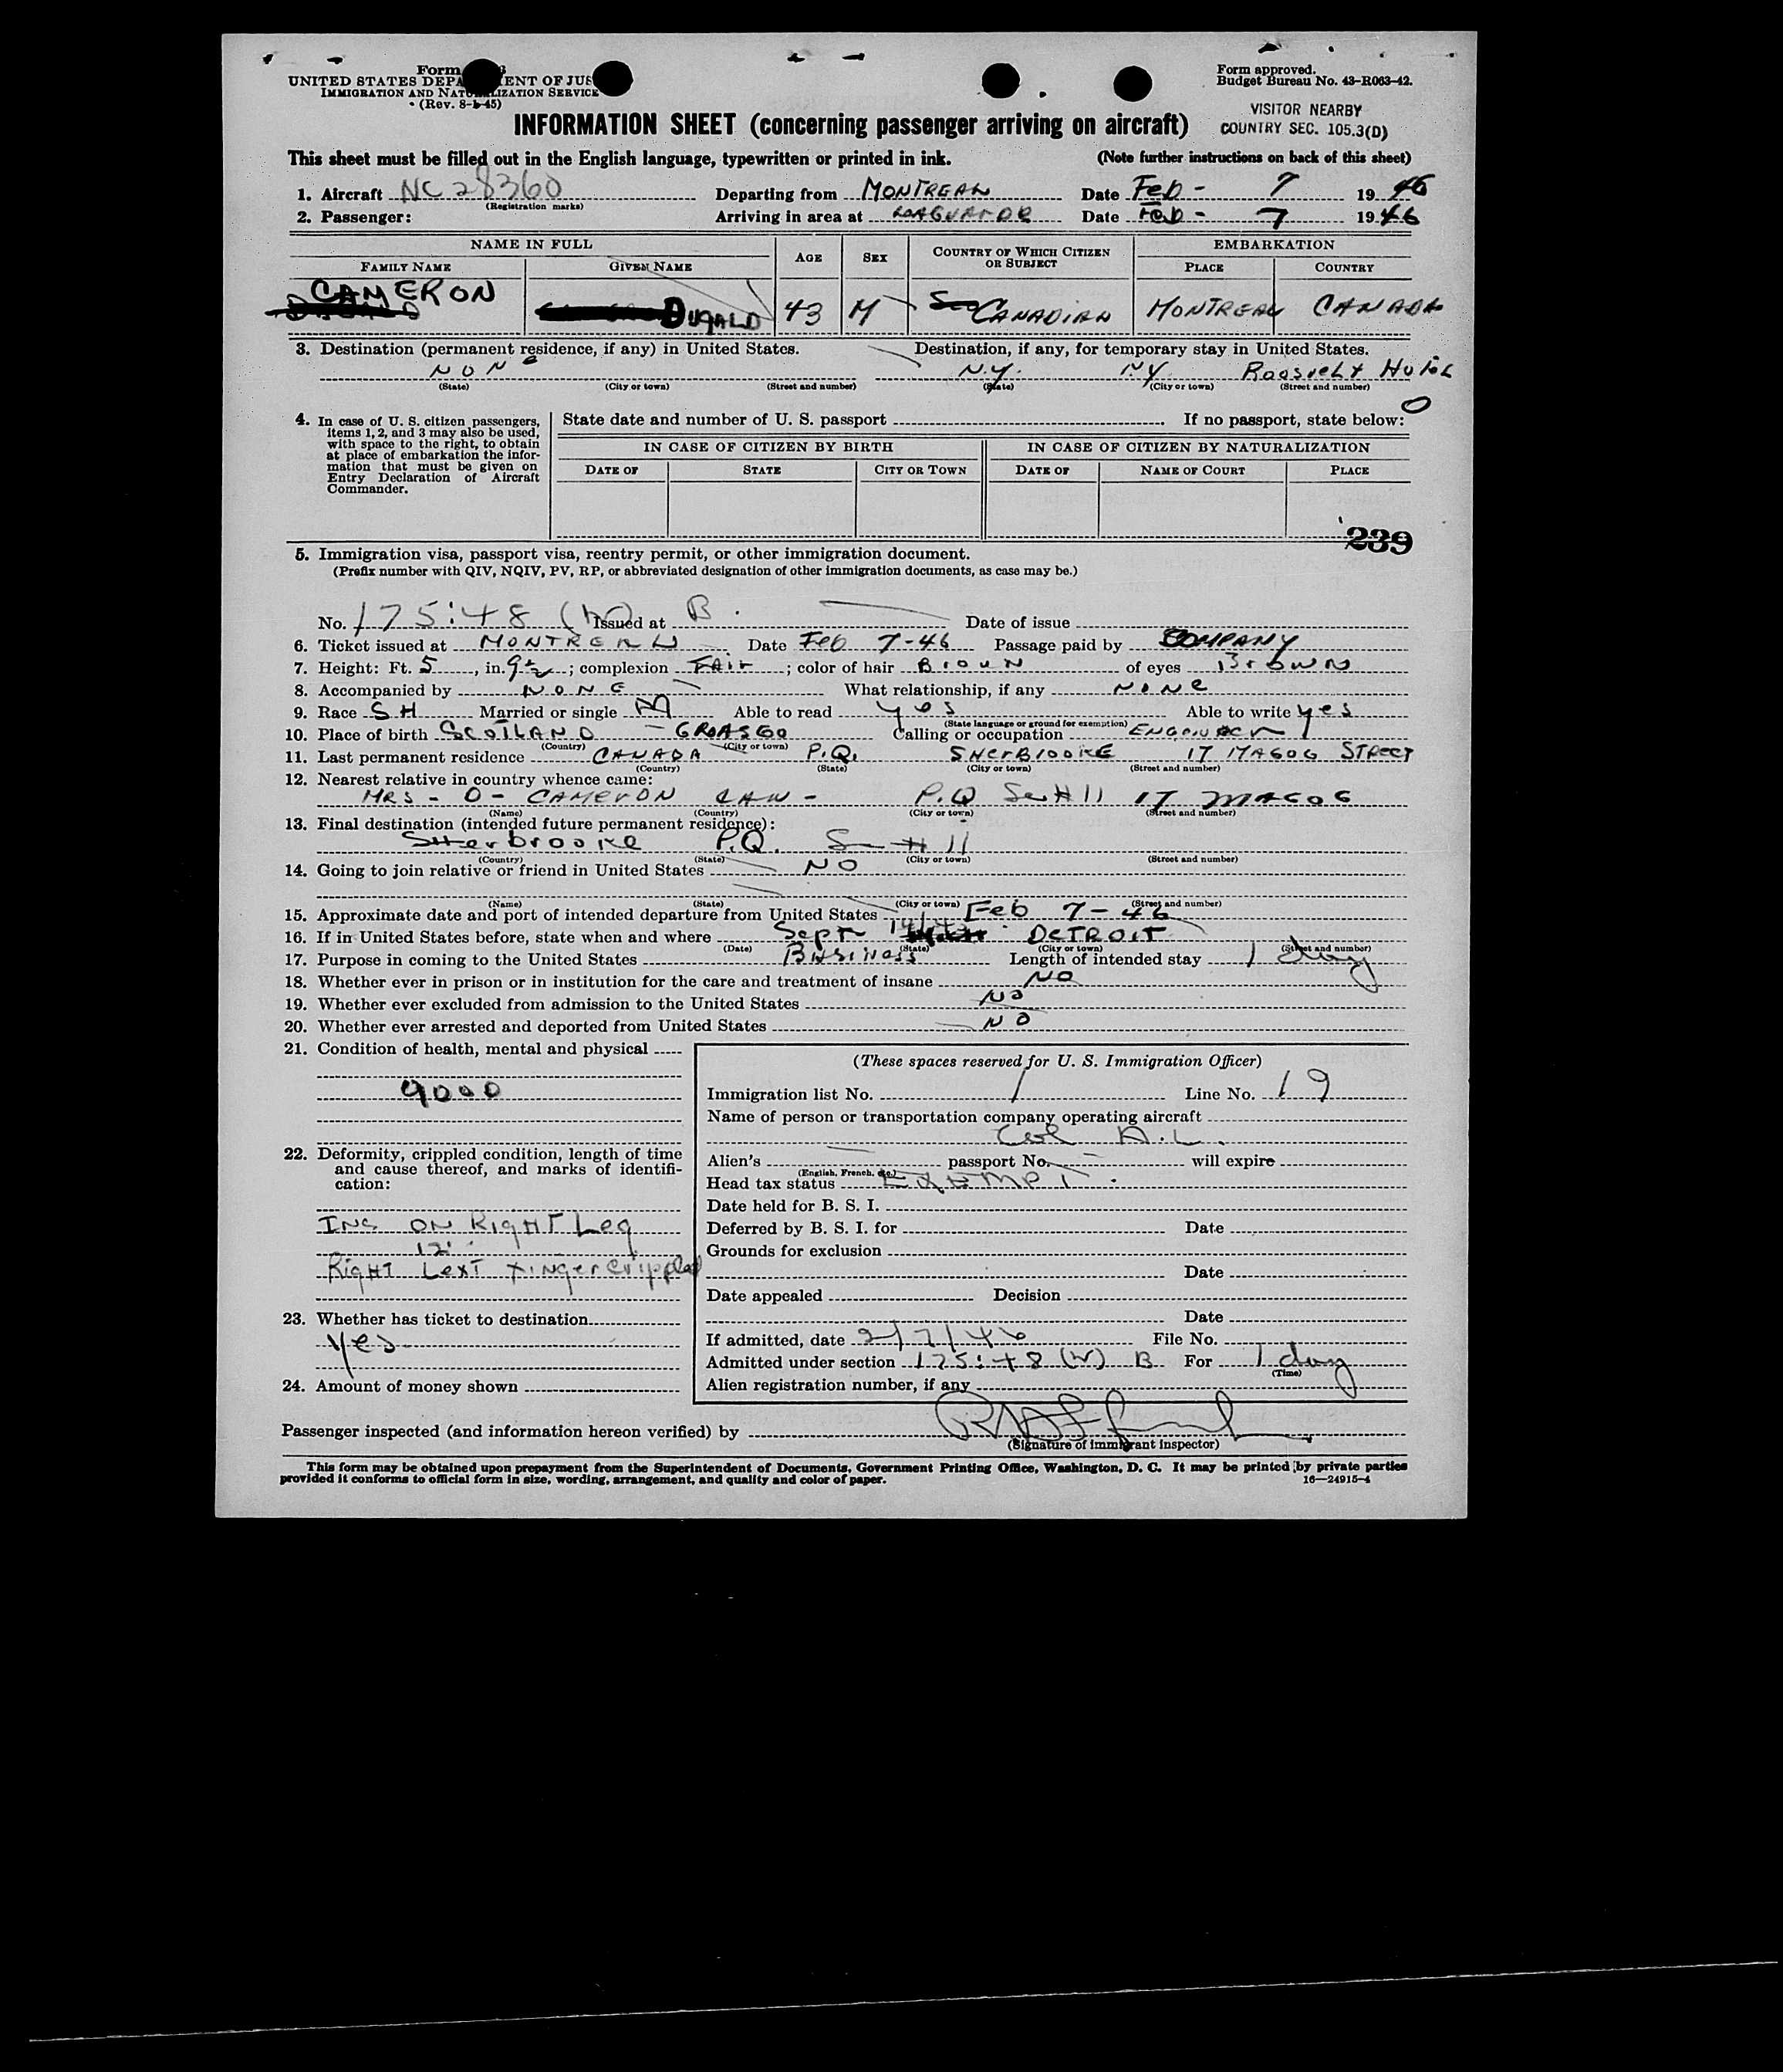 Form
UNITED STATES DEPA ENT OF JUS
IMMIGRATION AND NATURALIZATION SERVICE
(Rev. 8-1-45)
Form approved.
Budget Bureau No. 43-R063-42.
VISITOR NEARBY
COUNTRY SEC. 105.3(D)
INFORMATION SHEET (concerning passenger arriving on aircraft)
This sheet must be filled out in the English language, typewritten or printed in ink. (Note further instructions on back of this sheet)
1. Aircraft NC 28360 Departing from MONTREAL Date Feb - 7 19 46
(Registration marks)
2. Passenger: Arriving in area at Date Feb - 7 19 46
NAME IN FULL AGE SEX COUNTRY OF WHICH CITIZEN OR SUBJECT EMBARKATION
FAMILY NAME GIVEN NAME PLACE COUNTRY
CAMERON DUGALD 43 M CANADIAN MONTREAL CANADA
3. Destination (permanent residence, if any) in United States. Destination, if any, for temporary stay in United States.
NONe N.Y. NY Roosvelt Hotel
(State) (City or town) (Street and number) (State) (City or town) (Street and number)
4. In case of U. S. citizen passengers, items 1, 2, and 3 may also be used, with space to the right, to obtain at place of embarkation the information that must be given on Entry Declaration of Aircraft Commander.
State date and number of U. S. passport If no passport, state below: 0
IN CASE OF CITIZEN BY BIRTH IN CASE OF CITIZEN BY NATURALIZATION
DATE OF STATE CITY OR TOWN DATE OF NAME OF COURT PLACE
239
5. Immigration visa, passport visa, reentry permit, or other immigration document.
(Prefix number with QIV, NQIV, PV, RP, or abbreviated designation of other immigration documents, as case may be.)
No. 175:48 Issued at B. Date of issue
6. Ticket issued at MONTREAL Date Feb 7-46 Passage paid by COMPANY
7. Height: Ft. 5, in. 9½; complexion FAIr; color of hair BroUN of eyes BroWN
8. Accompanied by NONE What relationship, if any NoNe
9. Race SH Married or single M Able to read yes Able to write yes
(State language or ground for exemption)
10. Place of birth SCOTLAND - GLASGO Calling or occupation
(Country) (City or town)
11. Last permanent residence CANADA P.Q. SHerBrooKE 17 MAGOG STReeT
(Country) (State) (City or town) (Street and number)
12. Nearest relative in country whence came:
MRS - D - CAMERON CAN - P.Q 17 MAGOG
(Name) (Country) (City or town) (Street and number)
13. Final destination (intended future permanent residence):
SHerbrooKe P.Q.
(Country) (State) (City or town) (Street and number)
14. Going to join relative or friend in United States NO
(Name) (State) (City or town) (Street and number)
15. Approximate date and port of intended departure from United States Feb 7-46
16. If in United States before, state when and where Sept DETROIT
(Date) (State) (City or town) (Street and number)
17. Purpose in coming to the United States BUSiNess Length of intended stay 1 day
18. Whether ever in prison or in institution for the care and treatment of insane NO
19. Whether ever excluded from admission to the United States NO
20. Whether ever arrested and deported from United States NO
21. Condition of health, mental and physical
gooD
22. Deformity, crippled condition, length of time and cause thereof, and marks of identification:
ON RigHT Leg
12"
RigHT Finger crippled
23. Whether has ticket to destination
Yes
24. Amount of money shown
(These spaces reserved for U. S. Immigration Officer)
Immigration list No. 1 Line No. 19
Name of person or transportation company operating aircraft
Col A.L.
Alien's passport No. will expire
(English, French, etc.)
Head tax status EXEMPT.
Date held for B. S. I.
Deferred by B. S. I. for Date
Grounds for exclusion
Date
Date appealed Decision
Date
If admitted, date 2/7/46 File No.
Admitted under section 175:48 (W) B For 1 day
(Time)
Alien registration number, if any
Passenger inspected (and information hereon verified) by
(Signature of immigrant inspector)
This form may be obtained upon prepayment from the Superintendent of Documents, Government Printing Office, Washington, D. C. It may be printed by private parties
provided it conforms to official form in size, wording, arrangement, and quality and color of paper. 16—24915-4